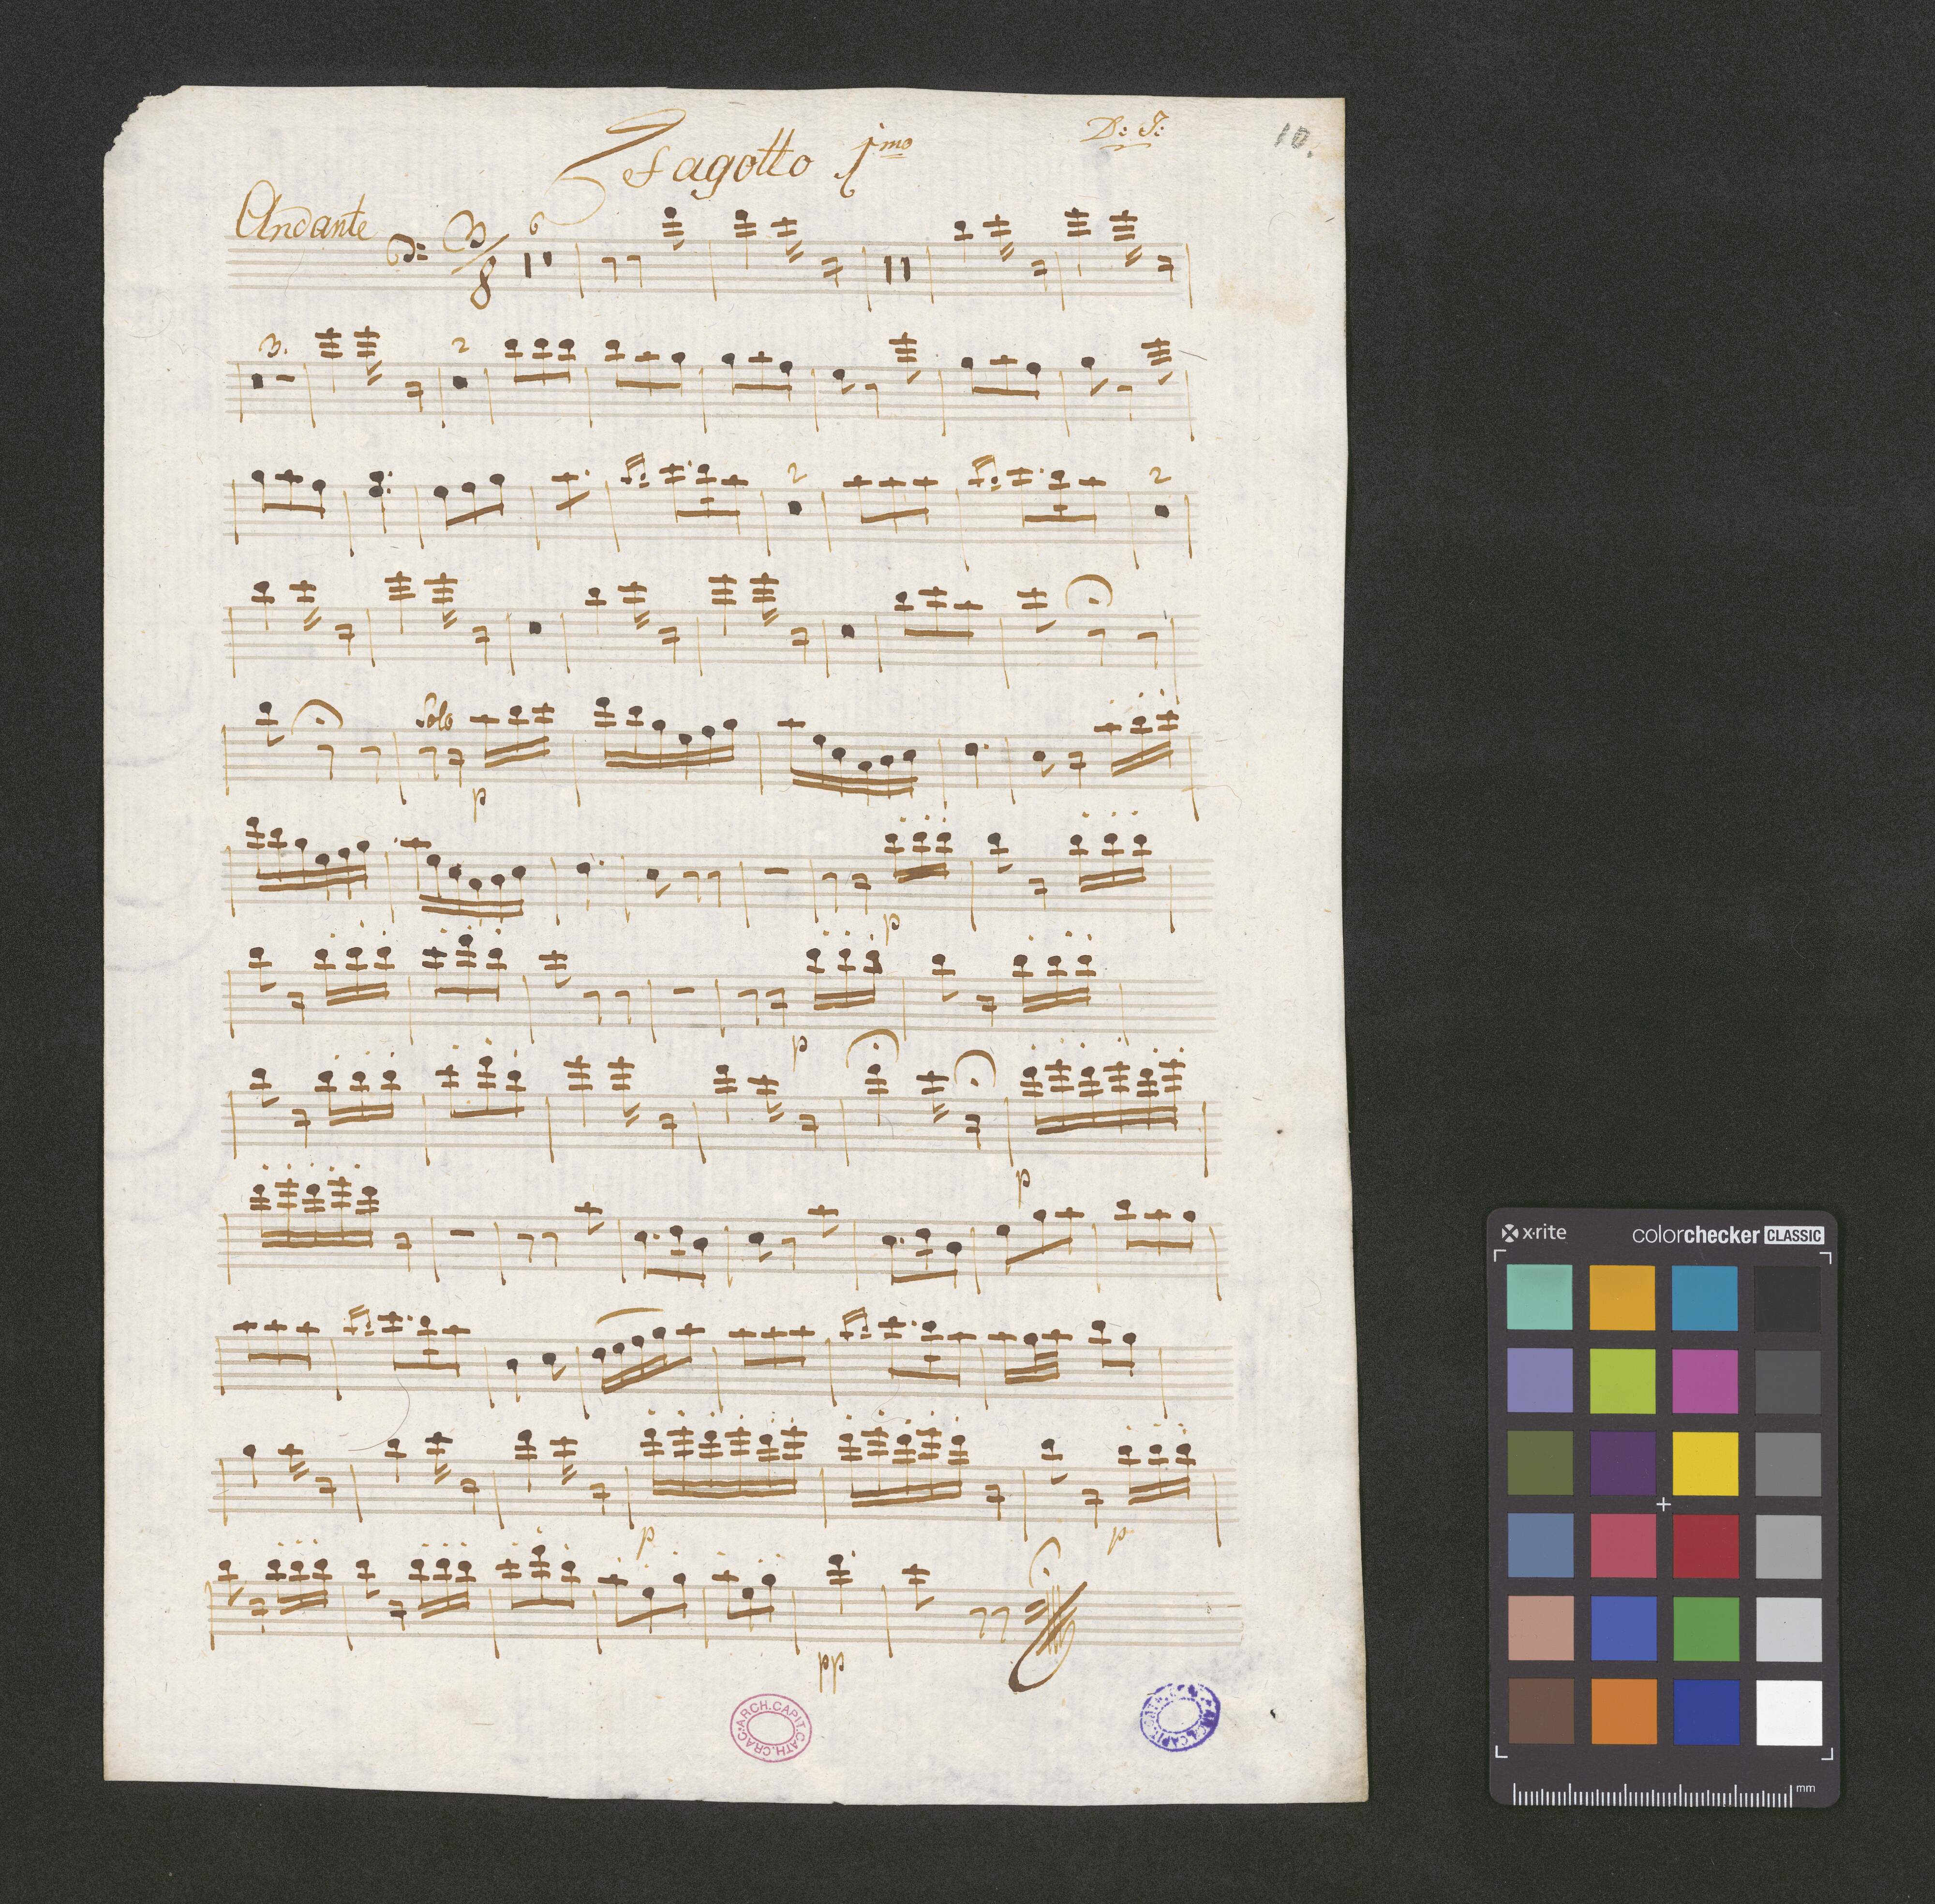 D: J:
10.
Fagotto 1mo
Andante
3/8
6
3.
2
2
2
Solo
p
p
p
p
p
p
pp
ARCH.CAPIT.CATH.CRAC
x·rite
colorchecker CLASSIC
mm